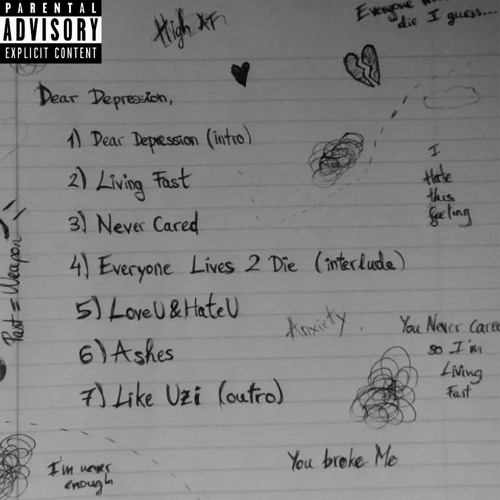 PARENTAL
ADVISORY
EXPLICIT CONTENT
High AF
Everyone
die I guess...
Dear Depression,
1) Dear Depression (intro)
2) Living Fast
3) Never Cared
4) Everyone Lives 2 Die (interlude)
5) LoveU&HateU
6) Ashes
7) Like Uzi (outro)
I
Hate
this
feeling
Past = Weapon
Anxiety.
You Never Cared
so I'm
Living
Fast
I'm never
enough
You broke Me